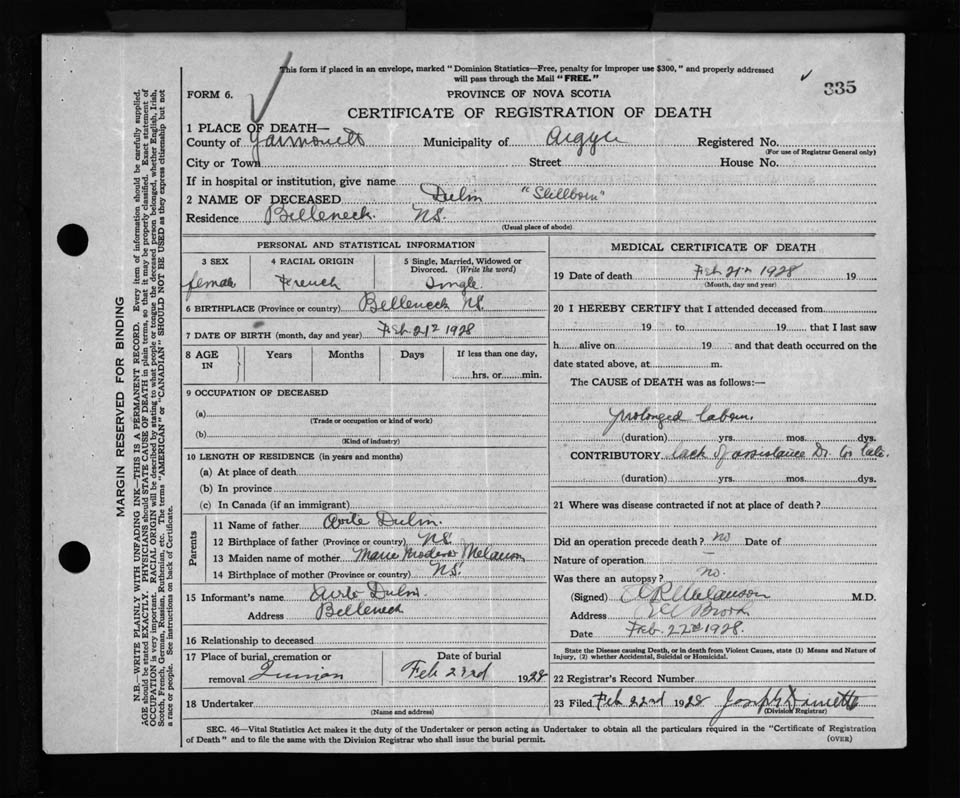 This form if placed in an envelope, marked "Dominion Statistics—Free, penalty for improper use $300," and properly addressed
will pass through the Mail "FREE."
335
FORM 6.
PROVINCE OF NOVA SCOTIA
CERTIFICATE OF REGISTRATION OF DEATH
1 PLACE OF DEATH—
County of Yarmouth Municipality of Argyle Registered No.
(For use of Registrar General only)
City or Town Street House No.
If in hospital or institution, give name
2 NAME OF DECEASED "Stillborn"
Residence Belleneck. N.S.
(Usual place of abode)
PERSONAL AND STATISTICAL INFORMATION
3 SEX 4 RACIAL ORIGIN 5 Single, Married, Widowed or
Divorced. (Write the word)
female French Single
6 BIRTHPLACE (Province or country) Belleneck N.S.
7 DATE OF BIRTH (month, day and year) Feb 21 1928
8 AGE IN Years Months Days If less than one day,
hrs. or min.
9 OCCUPATION OF DECEASED
(a)
(Trade or occupation or kind of work)
(b)
(Kind of industry)
10 LENGTH OF RESIDENCE (in years and months)
(a) At place of death
(b) In province
(c) In Canada (if an immigrant)
Parents
11 Name of father
12 Birthplace of father (Province or country) N.S.
13 Maiden name of mother Marie Melanson
14 Birthplace of mother (Province or country) N.S.
15 Informant's name
Address Belleneck
16 Relationship to deceased
17 Place of burial, cremation or Date of burial
removal Quinan Feb 23rd 1928
18 Undertaker
(Name and address)
MEDICAL CERTIFICATE OF DEATH
19 Date of death Feb 21 1928 19
(Month, day and year)
20 I HEREBY CERTIFY that I attended deceased from
19 to 19 that I last saw
h alive on 19 and that death occurred on the
date stated above, at m.
The CAUSE of DEATH was as follows:—
prolonged labour.
(duration) yrs. mos. dys.
CONTRIBUTORY lack of assistance Dr. to late.
(duration) yrs. mos. dys.
21 Where was disease contracted if not at place of death?
Did an operation precede death? no Date of
Nature of operation
Was there an autopsy? no.
(Signed) Melanson M.D.
Address Brook
Date Feb. 22nd 1928.
State the Disease causing Death, or in death from Violent Causes, state (1) Means and Nature of
Injury, (2) whether Accidental, Suicidal or Homicidal.
22 Registrar's Record Number
23 Filed Feb 22nd 1928 Joseph
(Division Registrar)
SEC. 46—Vital Statistics Act makes it the duty of the Undertaker or person acting as Undertaker to obtain all the particulars required in the "Certificate of Registration
of Death" and to file the same with the Division Registrar who shall issue the burial permit.
(OVER)
MARGIN RESERVED FOR BINDING
N.B.—WRITE PLAINLY WITH UNFADING INK—THIS IS A PERMANENT RECORD. Every item of information should be carefully supplied.
AGE should be stated EXACTLY. PHYSICIANS should STATE CAUSE OF DEATH in plain terms, so that it may be properly classified. Exact statement of
OCCUPATION is very important. RACIAL ORIGIN will be described by stating to what people or tongue the deceased person belonged, whether English, Irish,
Scotch, French, German, Russian, Ruthenian, etc. The terms "AMERICAN" or "CANADIAN" SHOULD NOT BE USED as they express citizenship but not
a race or people. See instructions on back of Certificate.